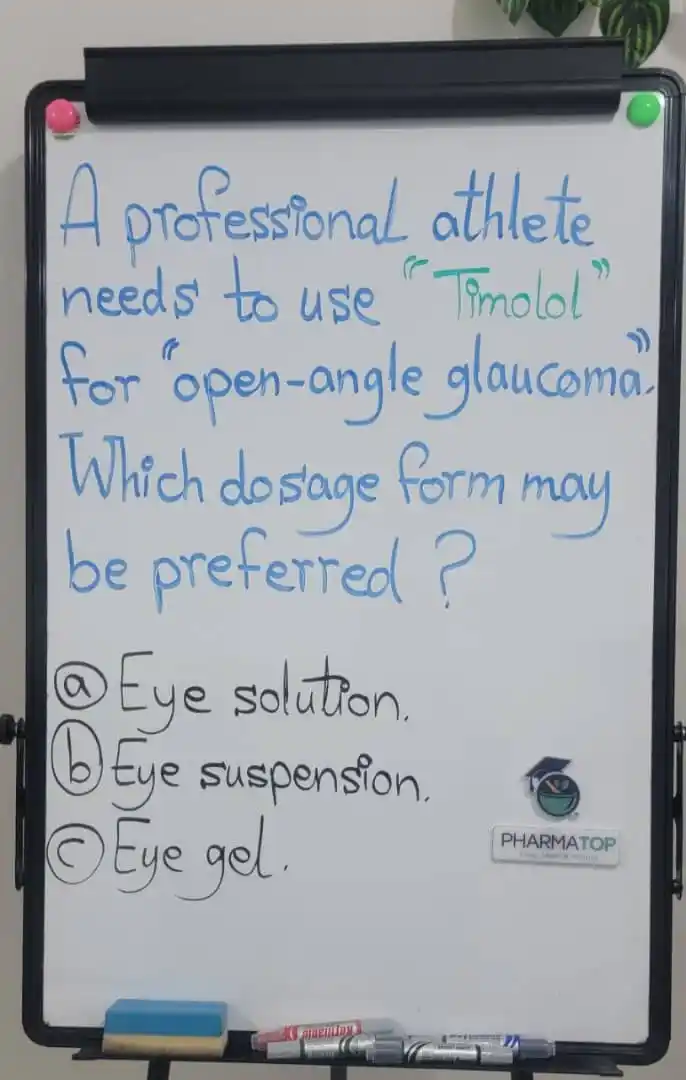 A professional athlete
needs to use "Timolol"
for "open-angle glaucoma".
Which dosage form may
be preferred ?
a Eye solution.
b Eye suspension.
c Eye gel.
PHARMATOP